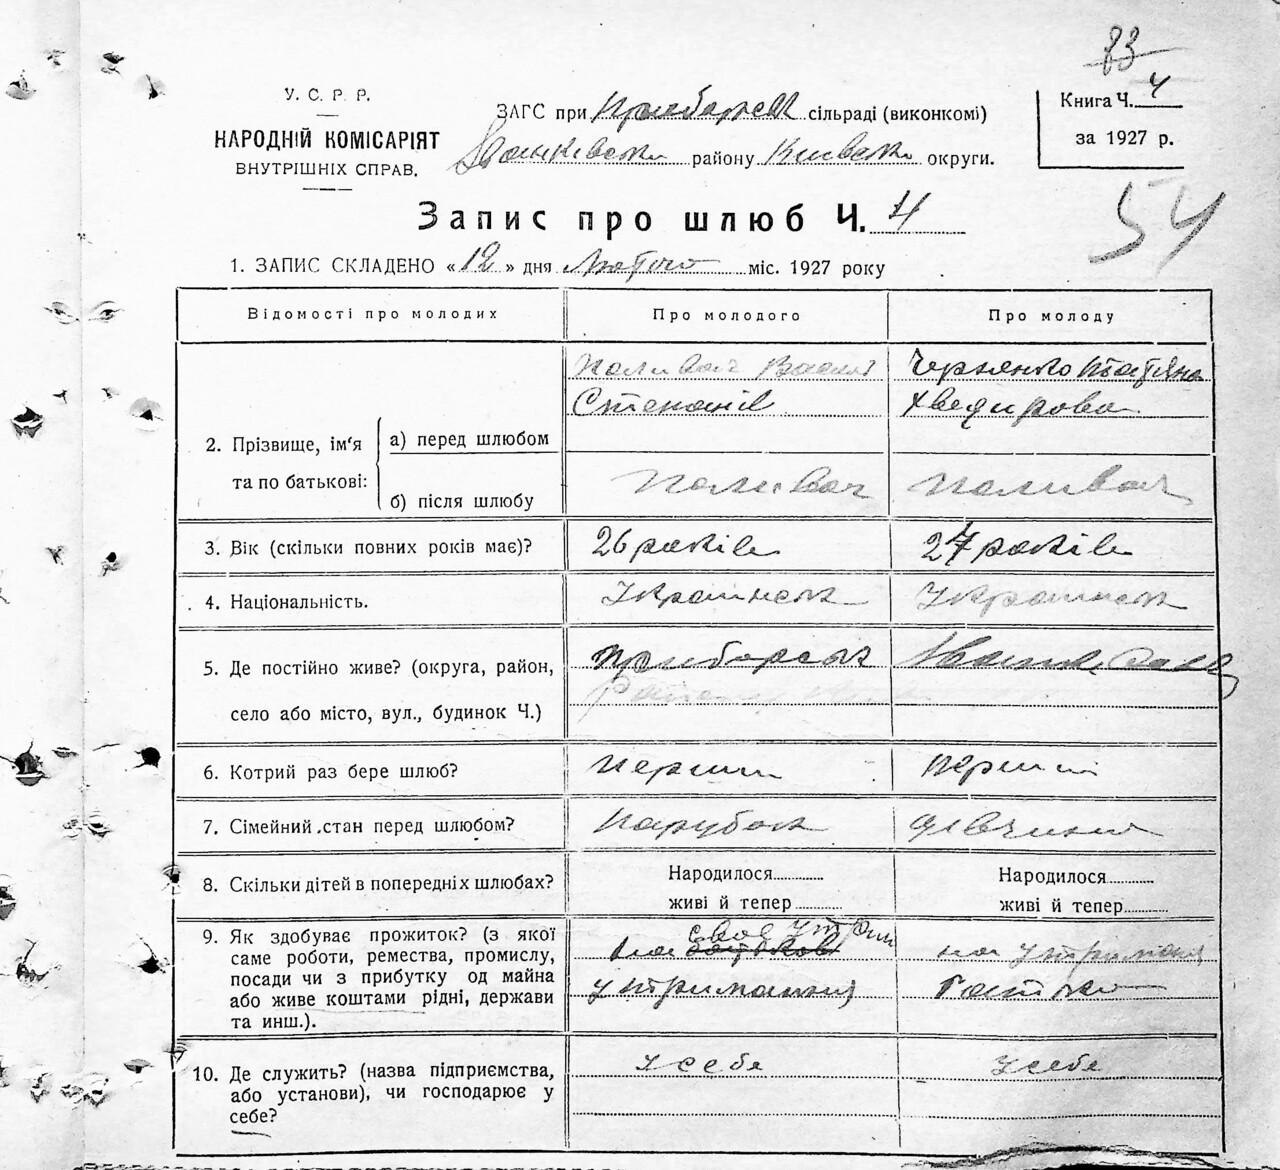 83
У. С. Р. Р.
НАРОДНІЙ КОМІСАРІЯТ
ВНУТРІШНІХ СПРАВ.
ЗАГС при Прибарськ сільраді (виконкомі)
району Київська округи.
Книга Ч. 4
за 1927 р.
54
Запис про шлюб Ч. 4
1. ЗАПИС СКЛАДЕНО «12» дня Лютого міс. 1927 року
Відомості про молодих
Про молодого
Про молоду
2. Прізвище, ім'я та по батькові:
а) перед шлюбом
Поливач Василь
Степанів
Тетяна
Хведирова
б) після шлюбу
Поливач
Поливач
3. Вік (скільки повних років має)?
26 років
27 років
4. Національність.
Українськ
Українськ
5. Де постійно живе? (округа, район,
село або місто, вул., будинок Ч.)
Прибарськ
6. Котрий раз бере шлюб?
перший
перший
7. Сімейний стан перед шлюбом?
парубок
дівчина
8. Скільки дітей в попередніх шлюбах?
Народилося
живі й тепер
Народилося
живі й тепер
9. Як здобуває прожиток? (з якої
саме роботи, ремества, промислу,
посади чи з прибутку од майна
або живе коштами рідні, держави
та инш.).
своє
на батьков
утримання
на утримання
батька
10. Де служить? (назва підприємства,
або установи), чи господарює у
себе?
у себе
у себе